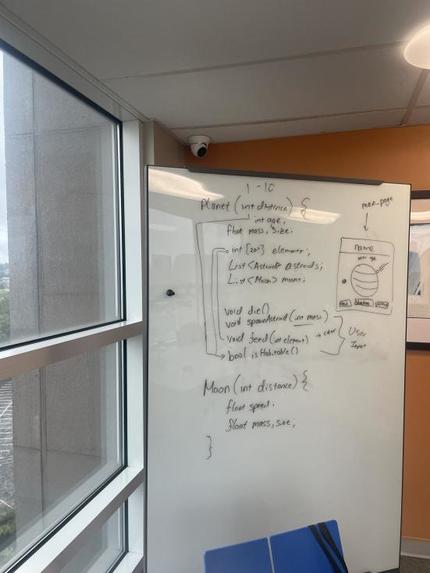 1-10
Planet (int distance) {
int age;
float mass, size;
int [20] element;
List<Asteroid> asteroids;
List<Moon> moons;
void die()
void spawnAsteroid(int mass)
void feed(int element) → color
bool isHabitable()
User
Input
main_page
name
Moon (int distance) {
float speed;
float mass, size;
}